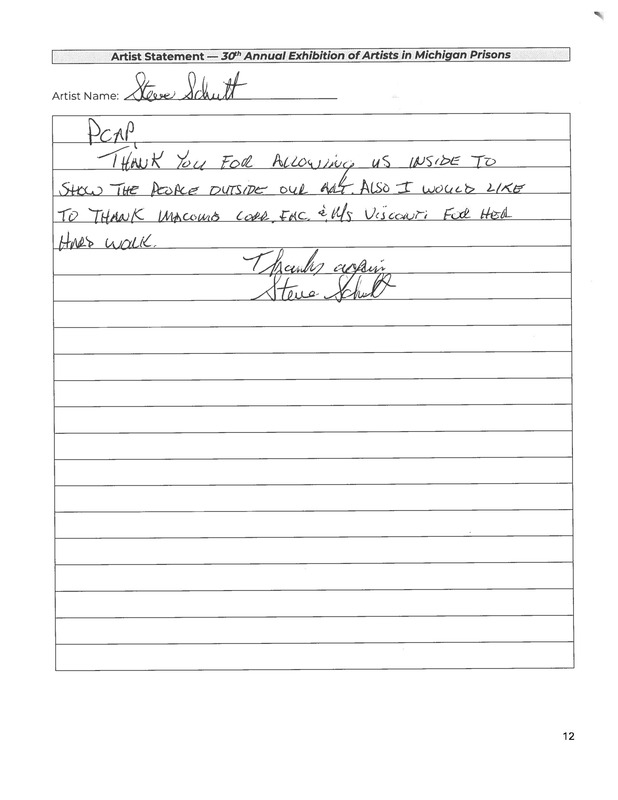 Artist Statement — 30th Annual Exhibition of Artists in Michigan Prisons
Artist Name: Steve Schutt
PCAP,
THANK YOU FOR ALLOWING US INSIDE TO
SHOW THE PEOPLE OUTSIDE OUR ART. ALSO I WOULD LIKE
TO THANK MACOMB CORR. FAC. & M/S VISCONTI FOR HER
HARD WORK.
Thanks again
Steve Schutt
12